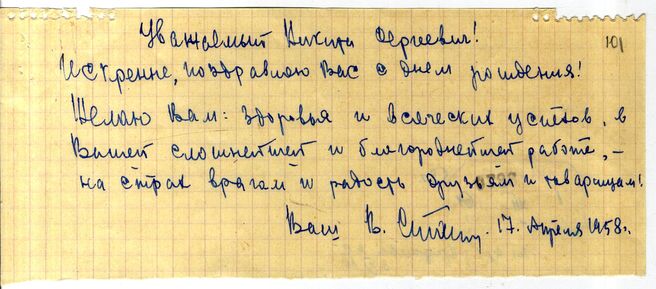 Уважаемый Никита Сергеевич!
101
Искренне, поздравляю Вас с днем рождения!
Желаю Вам: здоровья и всяческих успехов, в
Вашей сложнейшей и благороднейшей работе, –
на страх врагам и радость друзьям и товарищам!
Ваш В. 17. Апреля 1958г.